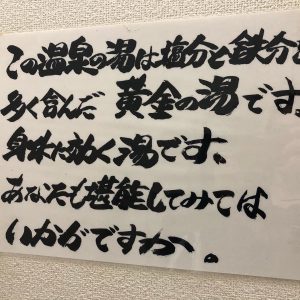 この温泉の湯は塩分と鉄分を
多く含んだ 黄金の湯です。
身体に効く湯です、
あなたも堪能してみては
いかがですか。